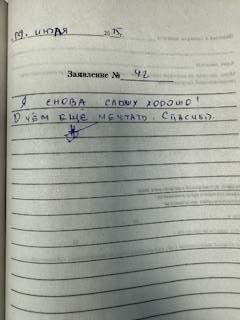 29. июля 2015.
Заявление № 42
Я снова слышу хорошо!
О чём ещё мечтать. Спасибо.